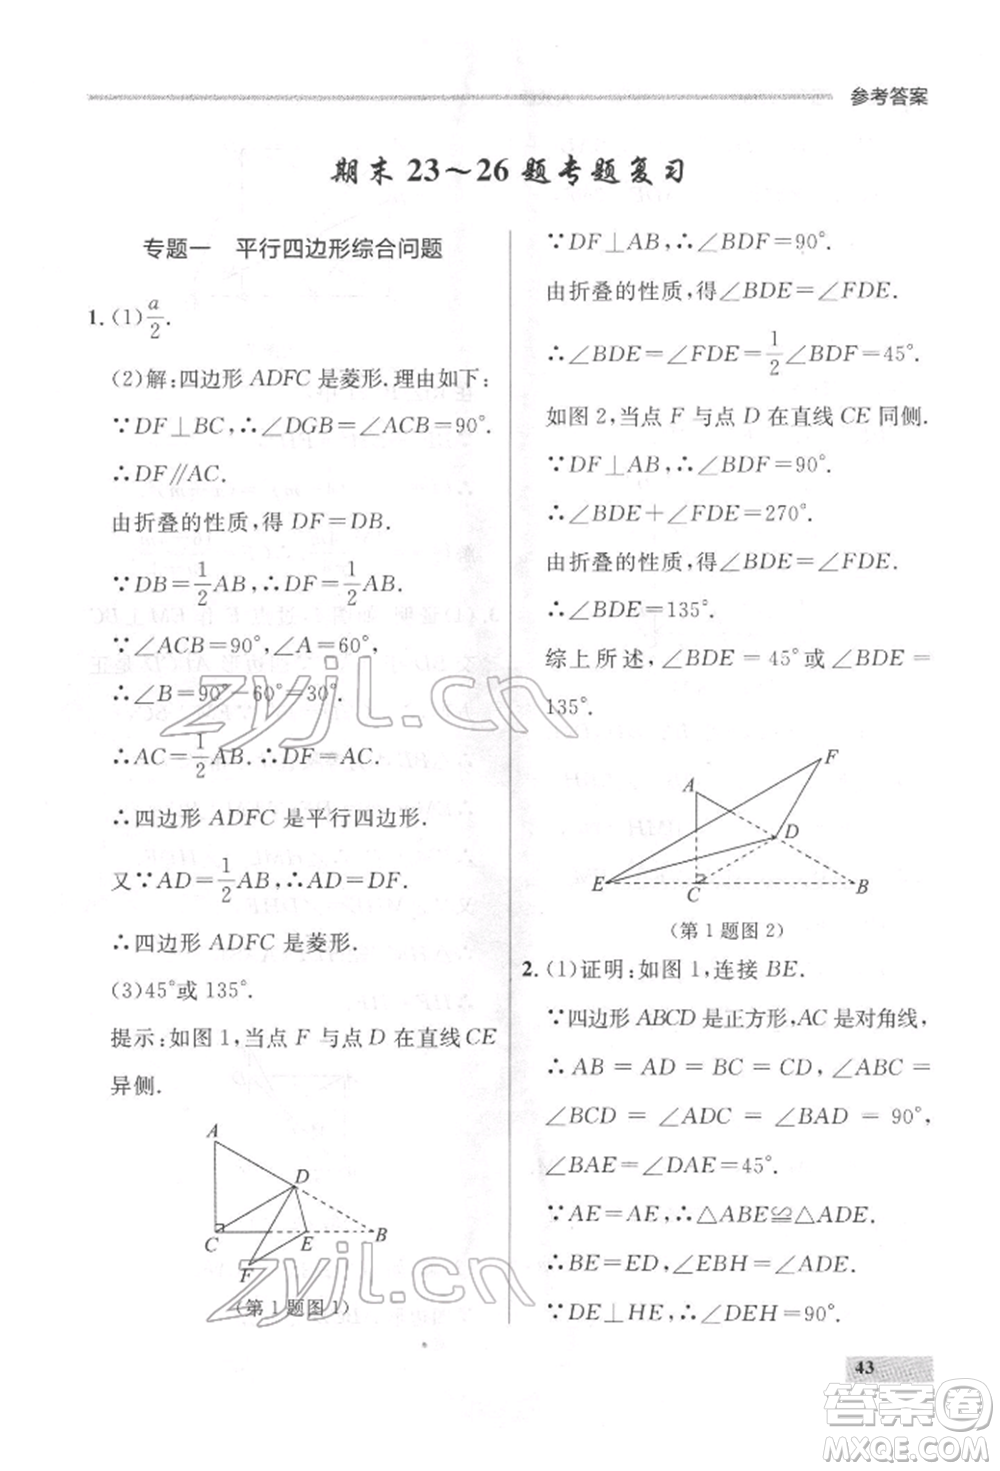 参考答案
期末23～26题专题复习
专题一　平行四边形综合问题
1. (1)a/2.
(2)解:四边形ADFC是菱形.理由如下:
∵DF⊥BC,∴∠DGB=∠ACB=90°.
∴DF∥AC.
由折叠的性质,得DF=DB.
∵DB=1/2AB,∴DF=1/2AB.
∵∠ACB=90°,∠A=60°,
∴∠B=90°-60°=30°.
∴AC=1/2AB.∴DF=AC.
∴四边形ADFC是平行四边形.
又∵AD=1/2AB,∴AD=DF.
∴四边形ADFC是菱形.
(3)45°或135°.
提示:如图1,当点F与点D在直线CE
异侧.
A
D
C
E
B
F
(第1题图1)
∵DF⊥AB,∴∠BDF=90°.
由折叠的性质,得∠BDE=∠FDE.
∴∠BDE=∠FDE=1/2∠BDF=45°.
如图2,当点F与点D在直线CE同侧.
∵DF⊥AB,∴∠BDF=90°.
∴∠BDE+∠FDE=270°.
由折叠的性质,得∠BDE=∠FDE.
∴∠BDE=135°.
综上所述,∠BDE=45°或∠BDE=
135°.
F
A
D
E
C
B
(第1题图2)
2. (1)证明:如图1,连接BE.
∵四边形ABCD是正方形,AC是对角线,
∴AB=AD=BC=CD,∠ABC=
∠BCD=∠ADC=∠BAD=90°,
∠BAE=∠DAE=45°.
∵AE=AE,∴△ABE≌△ADE.
∴BE=ED,∠EBH=∠ADE.
∵DE⊥HE,∴∠DEH=90°.
43
zyjl.cn
zyjl.cn
答案圈
MXQE.COM